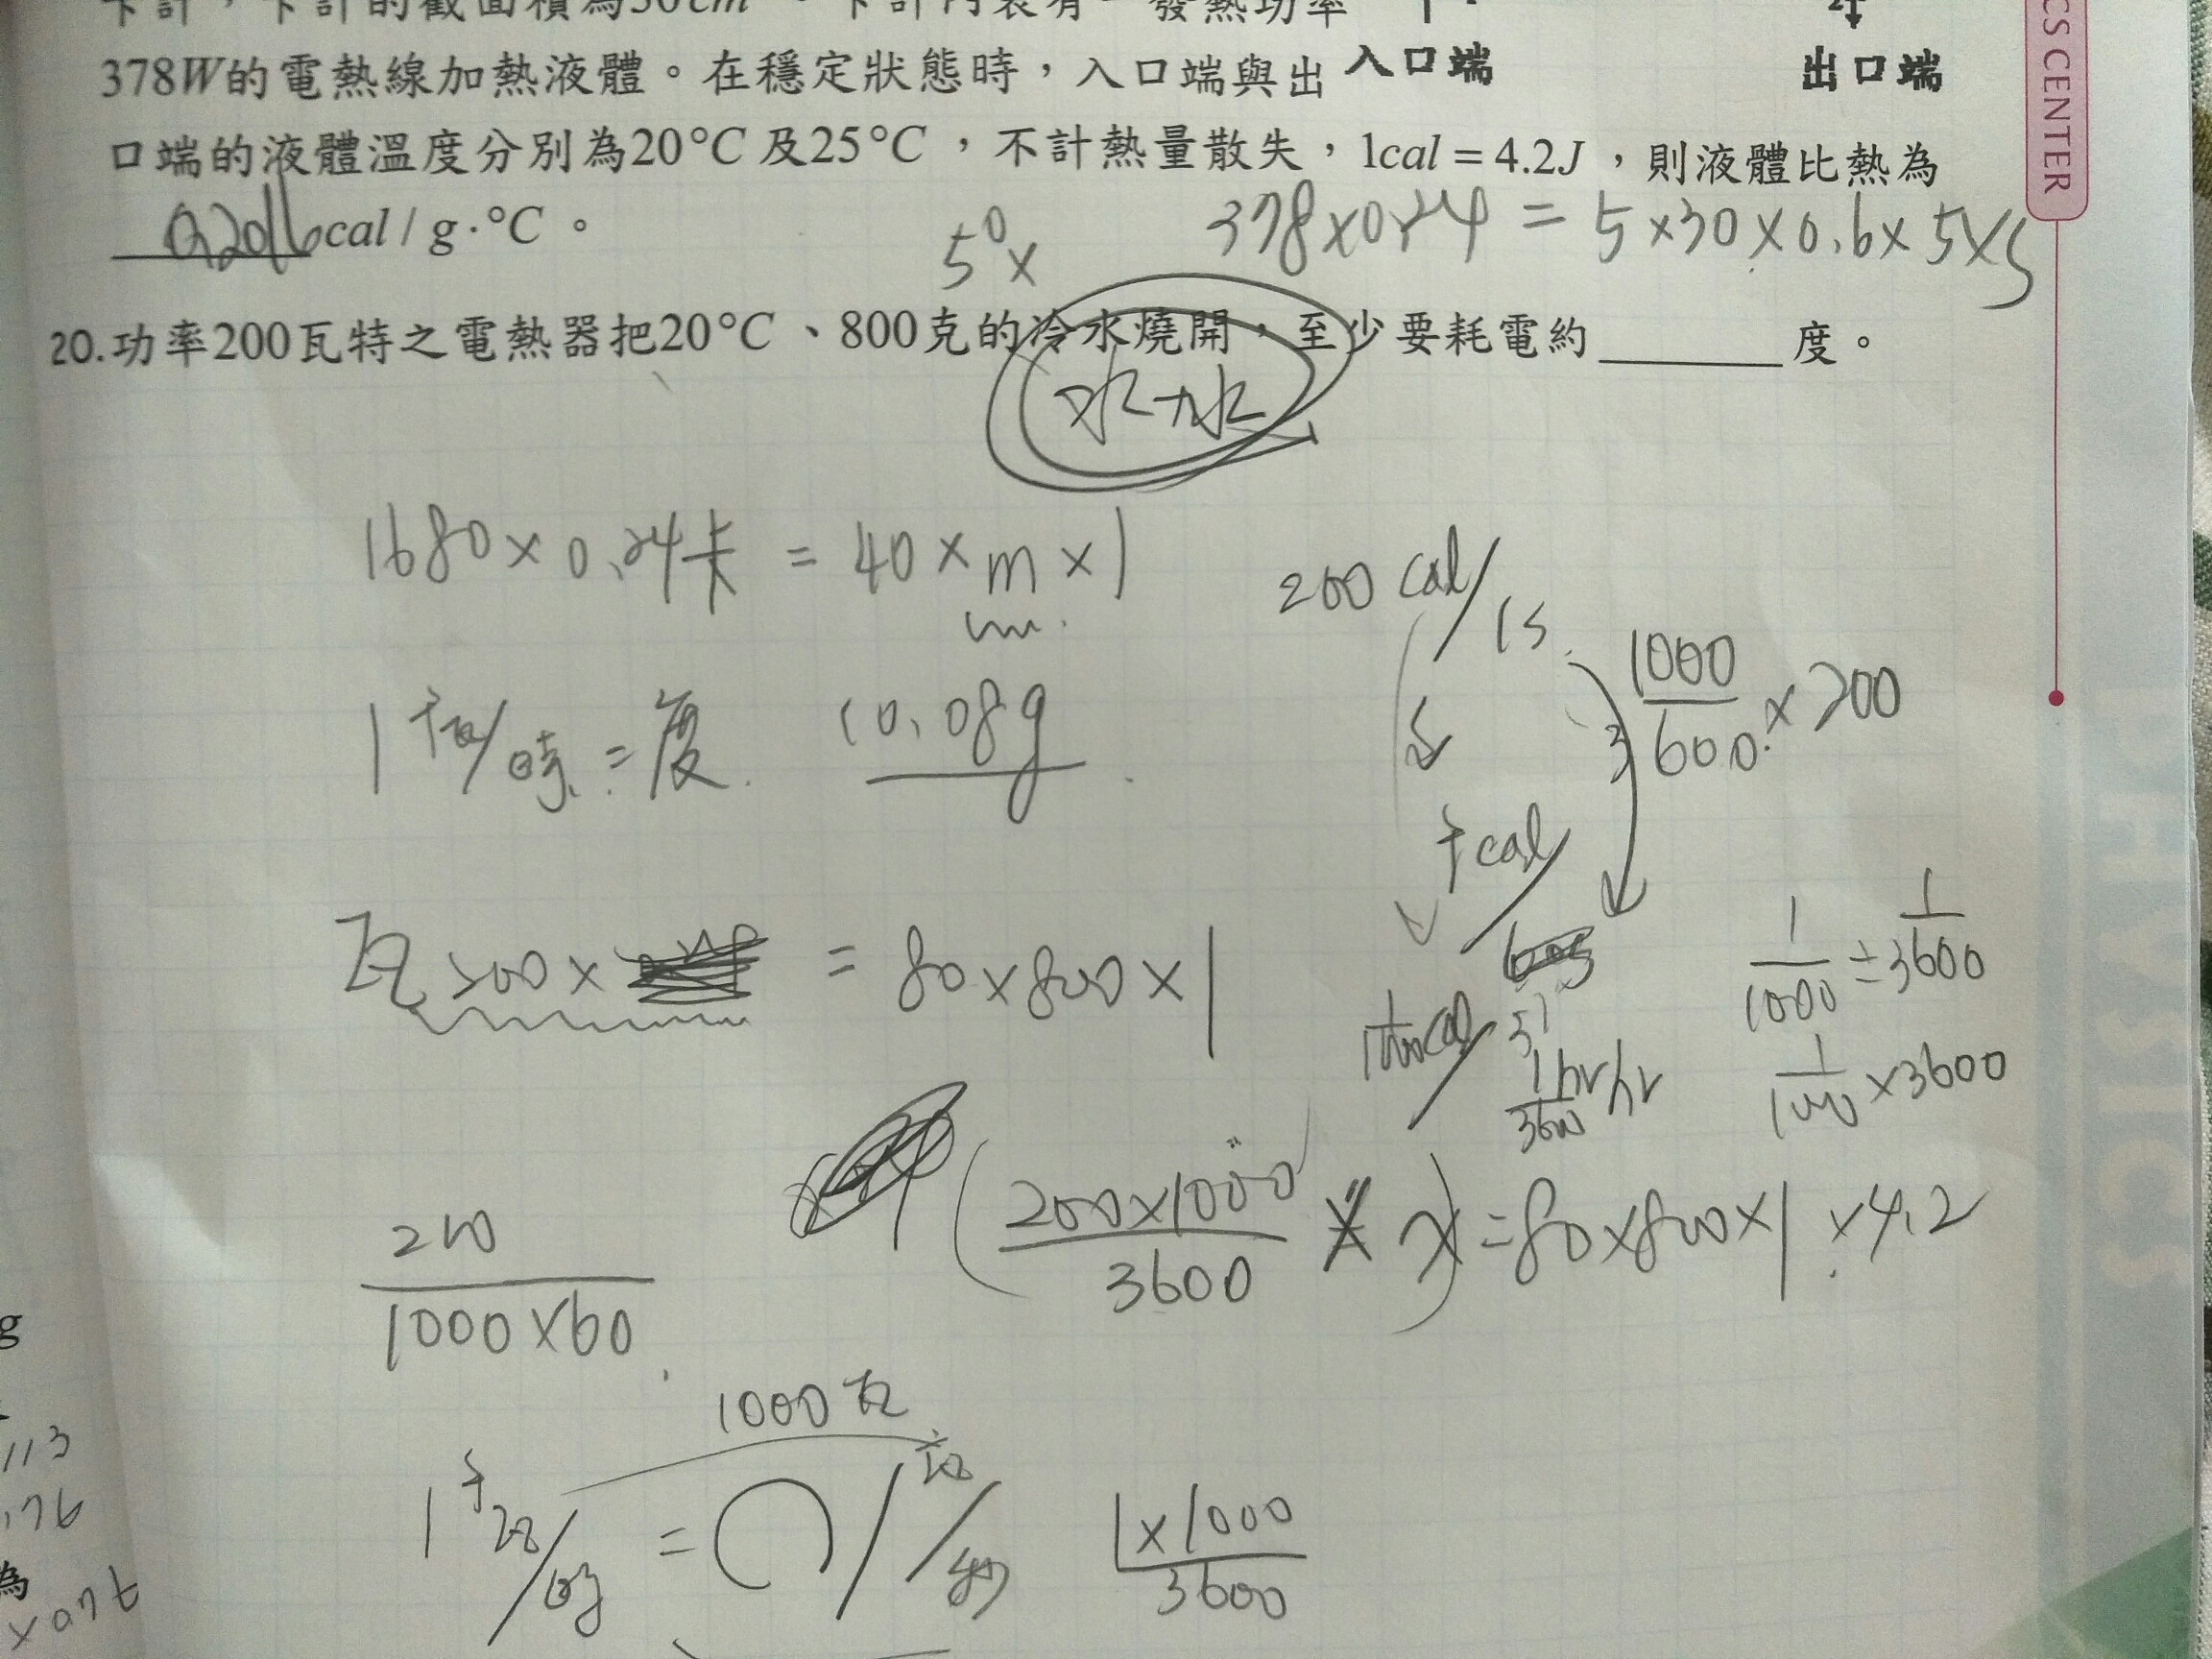 378W的電熱線加熱液體。在穩定狀態時，入口端與出
入口端
出口端
口端的液體溫度分別為20°C及25°C，不計熱量散失，1cal = 4.2J，則液體比熱為
cal / g·°C。
5⁰x
378×0.24 = 5×30×0.6×5×S
20.功率200瓦特之電熱器把20°C、800克的冷水燒開，至少要耗電約______度。
水→水
1680×0.24卡 = 40×m×1
200 cal/1s
1000/3600×200
1千瓦/時=度
10.08g
千cal/
瓦200× = 80×800×1
1/1000 ÷ 1/3600
1hr/3600 hr
1/1000×3600
(200×1000/3600 × x)=80×800×1×4.2
200/1000×60
1000瓦
1千瓦/時 = 瓦/秒
1×1000/3600
CS CENTER
g
113
176
為